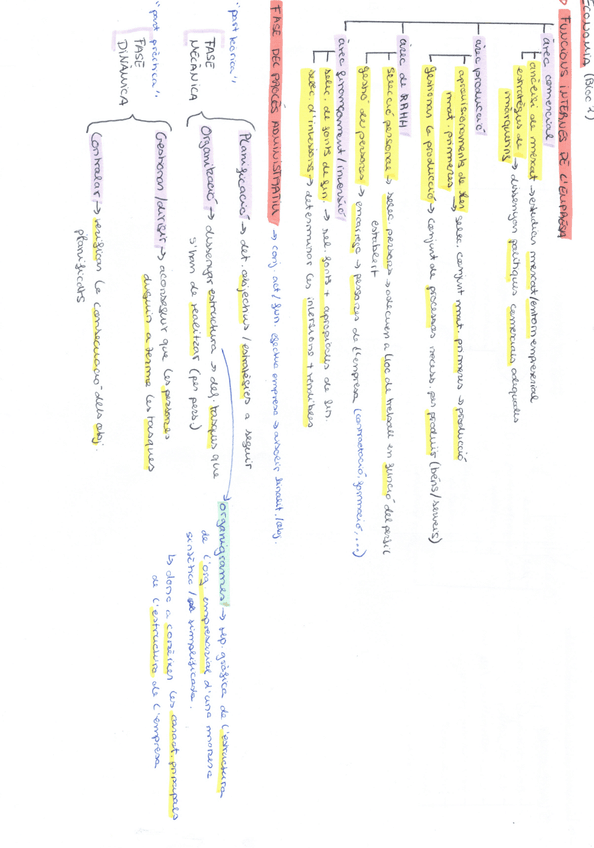 ECONOMIA (Bloc 2)
FUNCIONS INTERNES DE L'EMPRESA
àrea comercial
anàlisi de mercat → estudien mercat/entorn empresarial
estratègies de màrqueting → dissenyen polítiques comercials adequades
àrea producció
aprovisionaments de les mat. primeres → selec. conjunt mat. primeres → producció
gestionar la producció → conjunt de processos necess. per produir (béns/serveis)
àrea de RRHH
selecció personal → selec. persones → adeqüen a lloc de treball en funció del perfil
establert
gestió de persones → persones de l'empresa (contractació, formació, ...)
àrea finançament/inversió
selec. de fonts de fin. → sel. fonts + apropiades de fin.
selec. d'inversions → determinar les inversions + rendibles
FASE DEL PROCÉS ADMINISTRATIU → conj. act./fun. efectua empresa → assolir /obj.
"part teòrica"
FASE
MECÀNICA
Planificació → det. objectius/estratègies a seguir
Organització → dissenyar estructura → def. tasques que
s'han de realitzar (per pers.)
organigrames → rep. gràfica de l'estructura
de l'org. empresarial d'una manera
sintètica / simplificada.
↳ dona a conèixer les caract. principals
de l'estructura de l'empresa
"part pràctica"
FASE
DINÀMICA
Gestionar/dirigir → aconseguir que les persones
duguin a terme les tasques
Controlar → revisar la consecució dels obj.
planificats